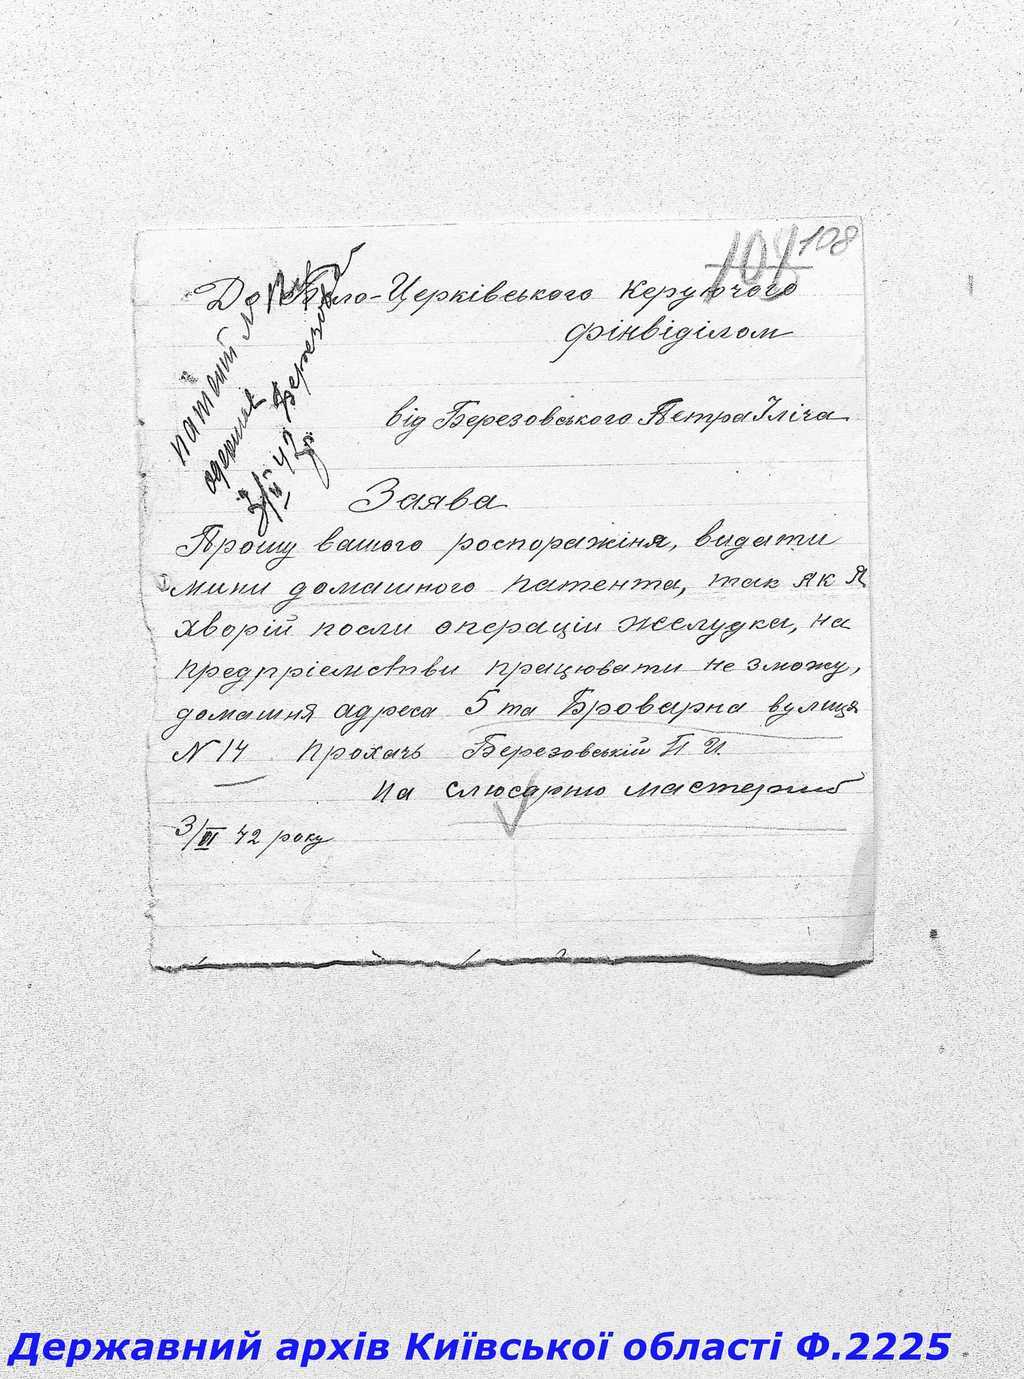 108
До Біло-Церківського керуючого
фінвіділом
від Березовського Петра Іліча
патент №
одержив
3/VI 42 р. Березовск
Заява
Прошу вашого роспоражіня, видати
мини домашного патента, так як я
хворій посли операціи желудка, на
предпріємстви працювати не зможу,
домашня адреса 5 та Броварна вулиця
N 14 прохачь Березовський П И.
На слюсарню мастерню
3/VI 42 року
Державний архів Київської області Ф.2225